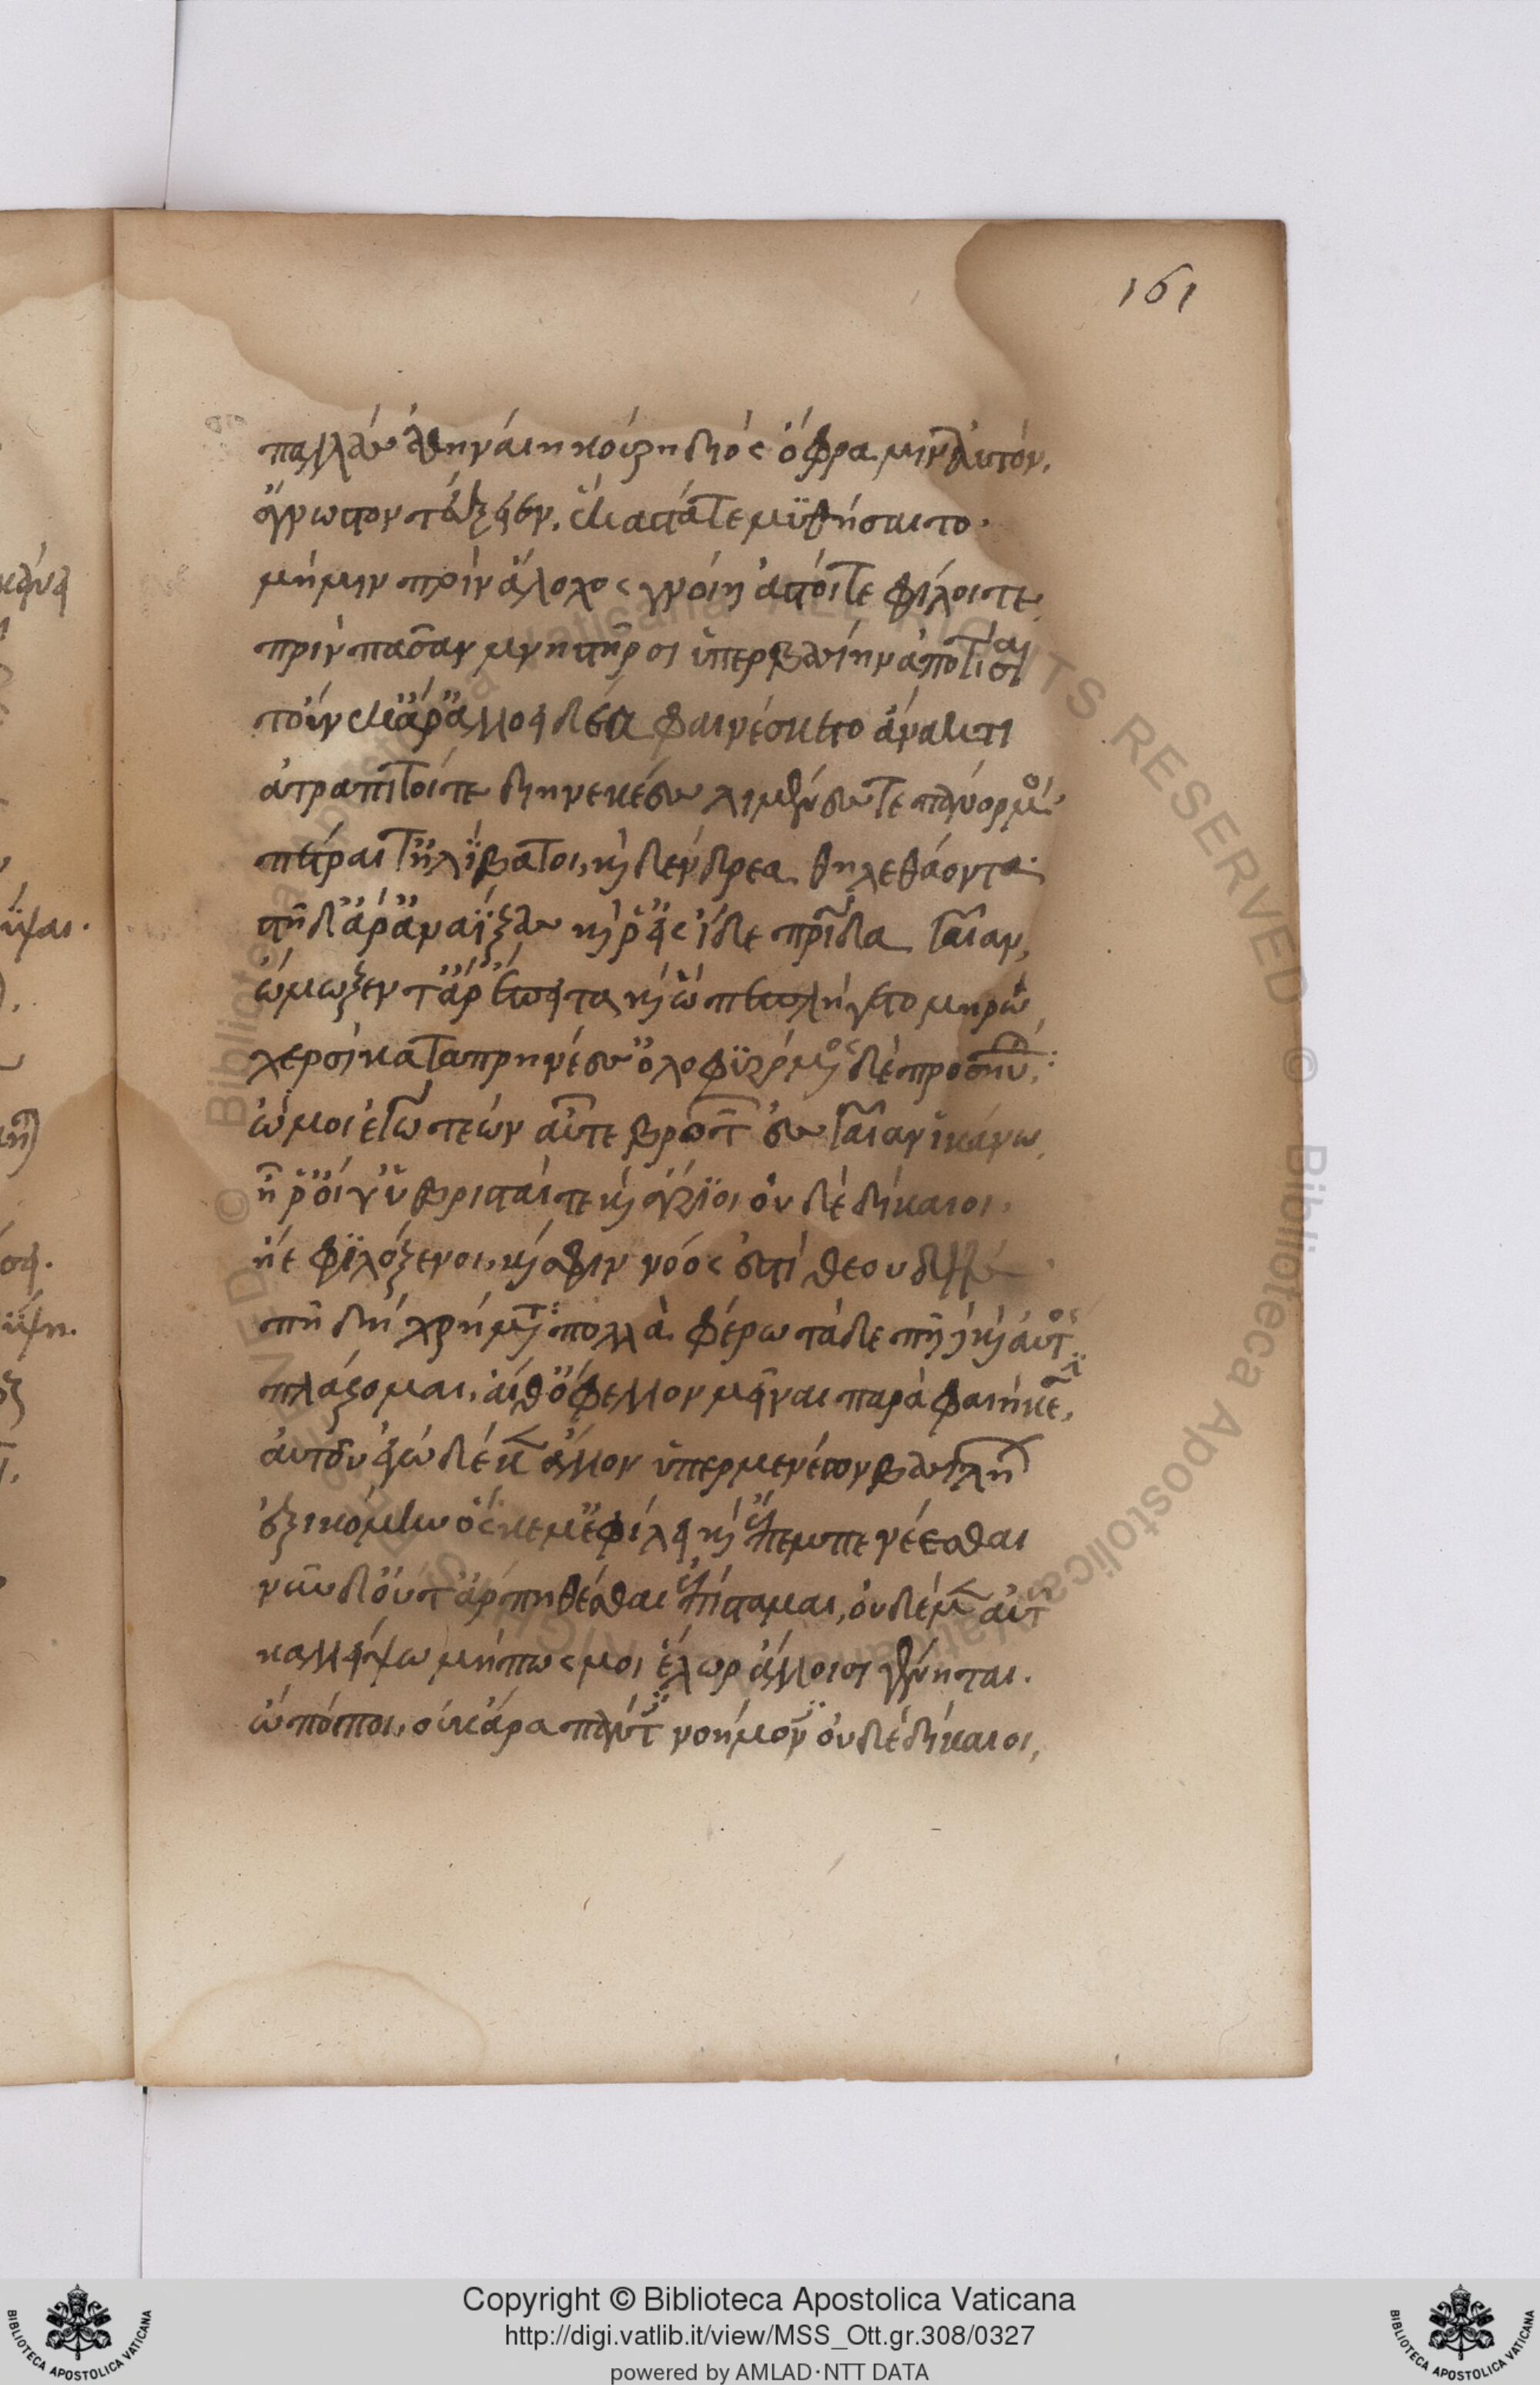 161
παλλὰς ἀθηναίη κούρη διός ὄφρα μιν αὐτὸν,
ἄγνωστον τεύξειεν, ἕκαστά τε μυθήσαιτο·
μή μιν πρὶν ἄλοχος γνοίη ἀστοί τε φίλοι τε,
πρὶν πᾶσαν μνηστῆρσι ὑπερβασίην ἀποτῖσαι
τοὔνεκ ἄρ ἀλλοειδέα φαινέσκετο ἄνακτι
ἀτραπιτοί τε διηνεκέες λιμένες τε πάνορμοι·
πέτραι τ ηλίβατοι, καὶ δένδρεα τηλεθάοντα·
στῆ δ ἄρ ἀναΐξας καί ῥ εἴσιδε πατρίδα γαῖαν,
ὤμωξεν τ ἄρ ἔπειτα καὶ ὣ πεπλήγετο μηρὼ,
χερσὶ καταπρηνέσσ ὀλοφυρόμενος δὲ προσηύδα:
ὤ μοι ἐγὼ τέων αὖτε βροτῶν ἐς γαῖαν ἱκάνω,
ἦ ῥ οἵ γ ὑβρισταί τε καὶ ἄγριοι οὐδὲ δίκαιοι,
ἠὲ φιλόξενοι, καί σφιν νόος ἐστὶ θεουδής
πῆ δὴ χρήματα πολλὰ φέρω τάδε πῆ τε καὶ αὐτὸς
πλάζομαι, αἴθ ὄφελλον μεῖναι παρὰ φαιήκεσσιν,
αὐτοῦ ἐγὼ δέ κεν ἄλλον ὑπερμενέων βασιλήων
ἐξικόμην ὅς κεν μ ἐφίλει καὶ ἔπεμπε νέεσθαι
νῦν δ οὔτ ἄρ πη θέσθαι ἐπίσταμαι, οὐδὲ μὲν αὐτοῦ
καλλείψω μή πως μοι ἕλωρ ἄλλοισι γένηται.
ὢ πόποι, οὐκ ἄρα πάντα νοήμονες οὐδὲ δίκαιοι,
Copyright © Biblioteca Apostolica Vaticana
http://digi.vatlib.it/view/MSS_Ott.gr.308/0327
powered by AMLAD·NTT DATA